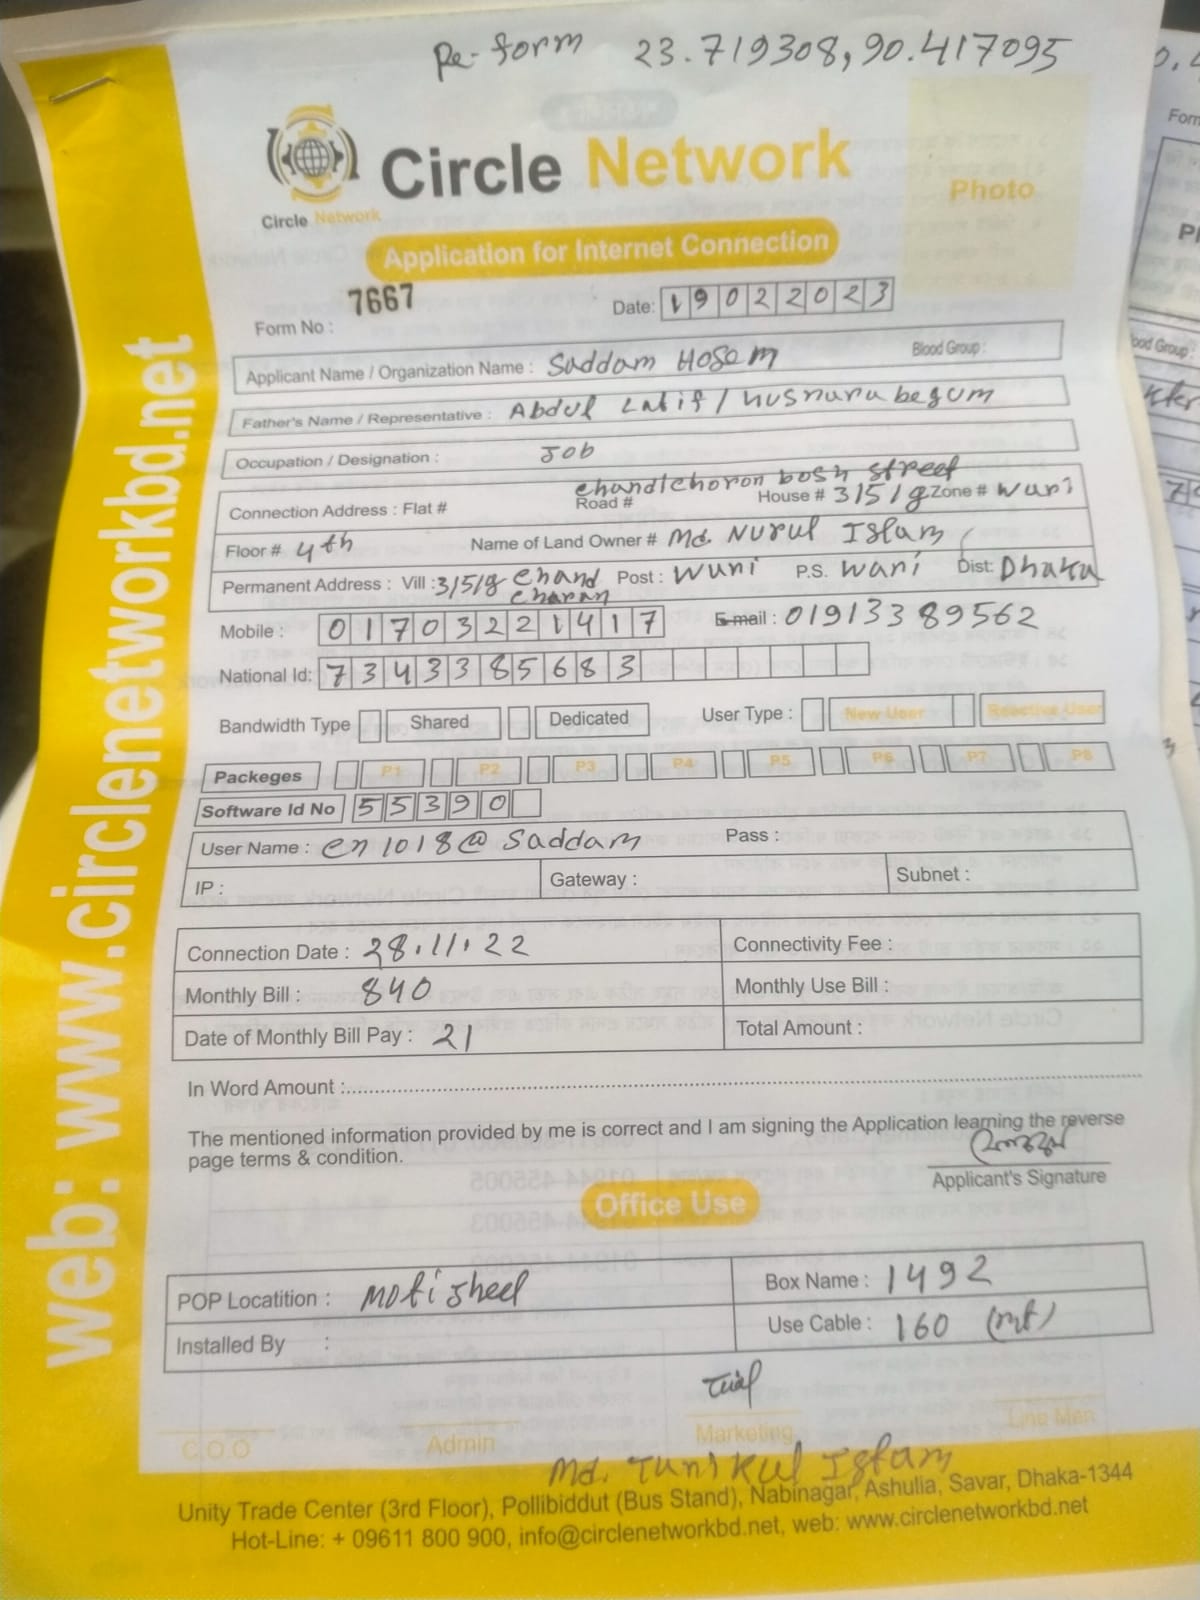 Re-form 23.719308, 90.417095
Circle Network
Circle Network
Photo
Application for Internet Connection
Form No : 7667
Date: 19022023
Applicant Name / Organization Name : Saddam Hosem Blood Group :
Father's Name / Representative : Abdul Latif / husnura begum
Occupation / Designation : Job
chandichoron bosh street
Connection Address : Flat # Road # House # 315/g Zone # wari
Floor # 4th Name of Land Owner # Md. Nurul Islam
Permanent Address : Vill : 315/g chand charan Post : wari P.S. wari Dist: Dhaka
Mobile : 01703221417 E-mail : 01913389562
National Id: 7343385683
Bandwidth Type Shared Dedicated User Type : New User Reactive User
Packeges P1 P2 P3 P4 P5 P6 P7 P8
Software Id No 55390
User Name : cn1018@saddam Pass :
IP : Gateway : Subnet :
Connection Date : 28.11.22 Connectivity Fee :
Monthly Bill : 840 Monthly Use Bill :
Date of Monthly Bill Pay : 21 Total Amount :
In Word Amount :
The mentioned information provided by me is correct and I am signing the Application learning the reverse
page terms & condition.
Applicant's Signature
Office Use
POP Locatition : Motijheel Box Name : 1492
Installed By : Use Cable : 160 (mt)
C.O.O Admin Marketing Line Men
Md. Tarikul Islam
Unity Trade Center (3rd Floor), Pollibiddut (Bus Stand), Nabinagar, Ashulia, Savar, Dhaka-1344
Hot-Line: + 09611 800 900, info@circlenetworkbd.net, web: www.circlenetworkbd.net
web: www.circlenetworkbd.net